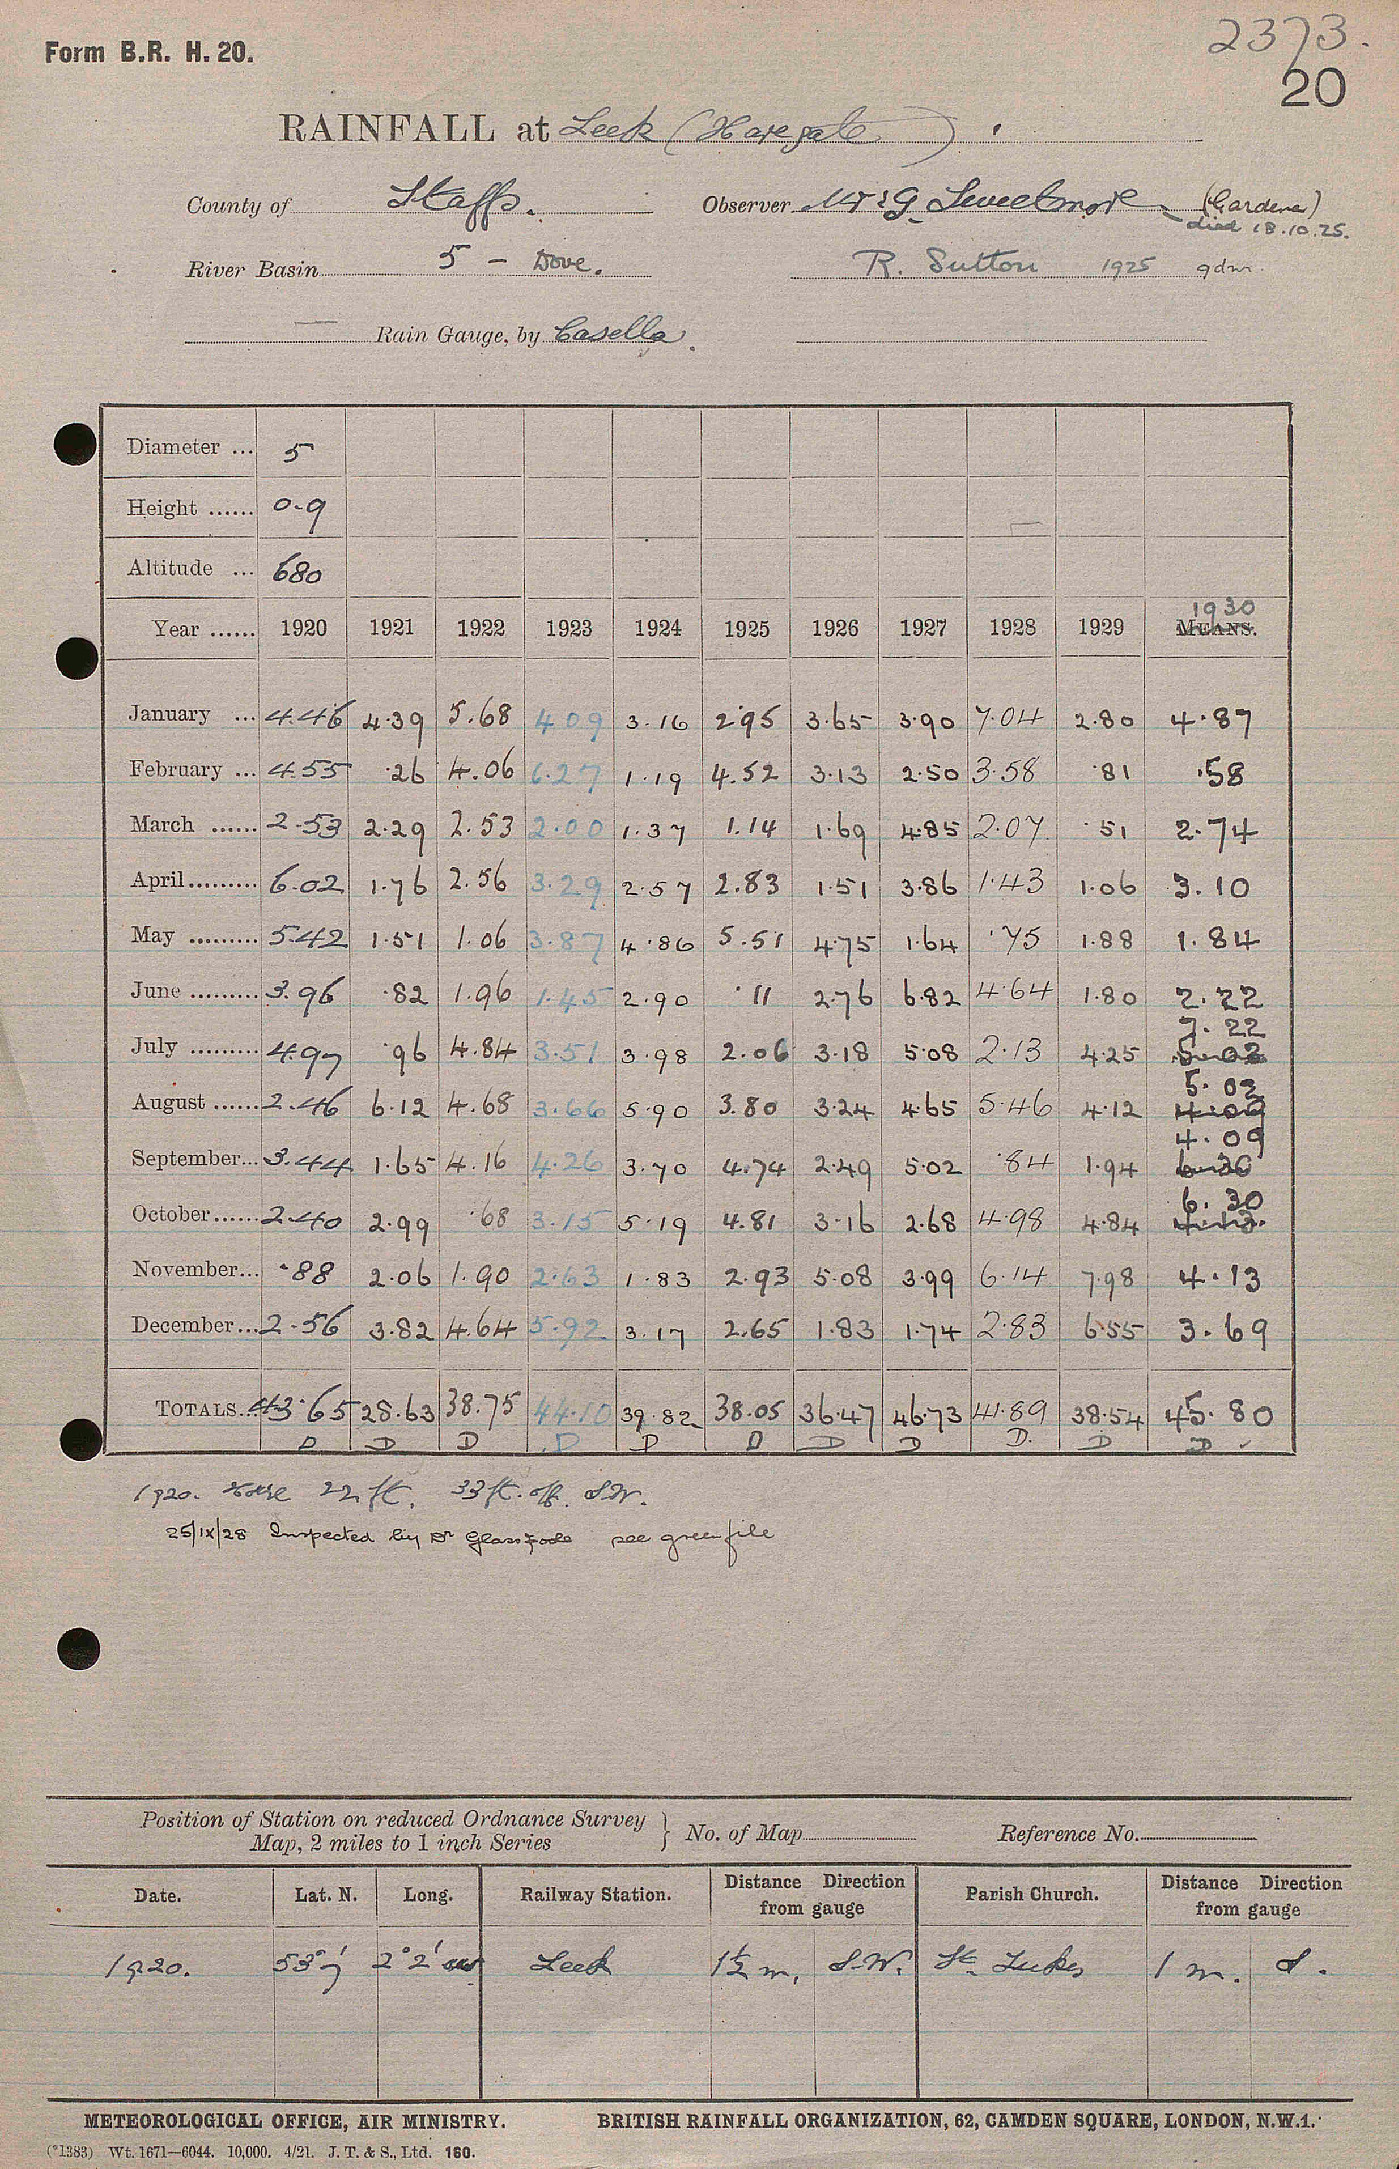 Form B.R. H. 20.
2373.
20
RAINFALL at Leek (Haregate)
County of Staffs. Observer Mr G. Sweetmore (Gardener)
died 18.10.25.
River Basin 5 – Dove. R. Sutton 1925 gdnr.
Rain Gauge, by Casella.
Diameter ... 5
Height ...... 0.9
Altitude ... 680
1930
Year ...... 1920 1921 1922 1923 1924 1925 1926 1927 1928 1929 MEANS.
January ... 4.46 4.39 5.68 4.09 3.16 2.95 3.65 3.90 7.04 2.80 4.87
February ... 4.55 .26 4.06 6.27 1.19 4.52 3.13 2.50 3.58 .81 .58
March ...... 2.53 2.29 2.53 2.00 1.37 1.14 1.69 4.85 2.07 .51 2.74
April......... 6.02 1.76 2.56 3.29 2.57 2.83 1.51 3.86 1.43 1.06 3.10
May ......... 5.42 1.51 1.06 3.87 4.86 5.51 4.75 1.64 .75 1.88 1.84
June ......... 3.96 .82 1.96 1.45 2.90 .11 2.76 6.82 4.64 1.80 2.22
7.22
July ......... 4.97 .96 4.84 3.51 3.98 2.06 3.18 5.08 2.13 4.25 5.02
5.02
August ...... 2.46 6.12 4.68 3.66 5.90 3.80 3.24 4.65 5.46 4.12 4.09
4.09
September... 3.44 1.65 4.16 4.26 3.70 4.74 2.49 5.02 .84 1.94 6.30
6.30
October...... 2.40 2.99 .68 3.15 5.19 4.81 3.16 2.68 4.98 4.84 4.13.
November... .88 2.06 1.90 2.63 1.83 2.93 5.08 3.99 6.14 7.98 4.13
December... 2.56 3.82 4.64 5.92 3.17 2.65 1.83 1.74 2.83 6.55 3.69
TOTALS... 43.65 28.63 38.75 44.10 39.82 38.05 36.47 46.73 41.89 38.54 45.80
D D D D D D D D D. D D
1920. 22 ft. 33 ft. off. S.W.
25/IX/28 Inspected by Dr Glasspoole see green file
Position of Station on reduced Ordnance Survey
Map, 2 miles to 1 inch Series } No. of Map Reference No.
Date. Lat. N. Long. Railway Station. Distance Direction from gauge Parish Church. Distance Direction from gauge
1920. 53° 7' 2° 2' Leek 1½ m. S.W. St. Lukes 1 m. S.
METEOROLOGICAL OFFICE, AIR MINISTRY. BRITISH RAINFALL ORGANIZATION, 62, CAMDEN SQUARE, LONDON, N.W.1.
(*1383) Wt. 1671—6044. 10,000. 4/21. J. T. & S., Ltd. 160.